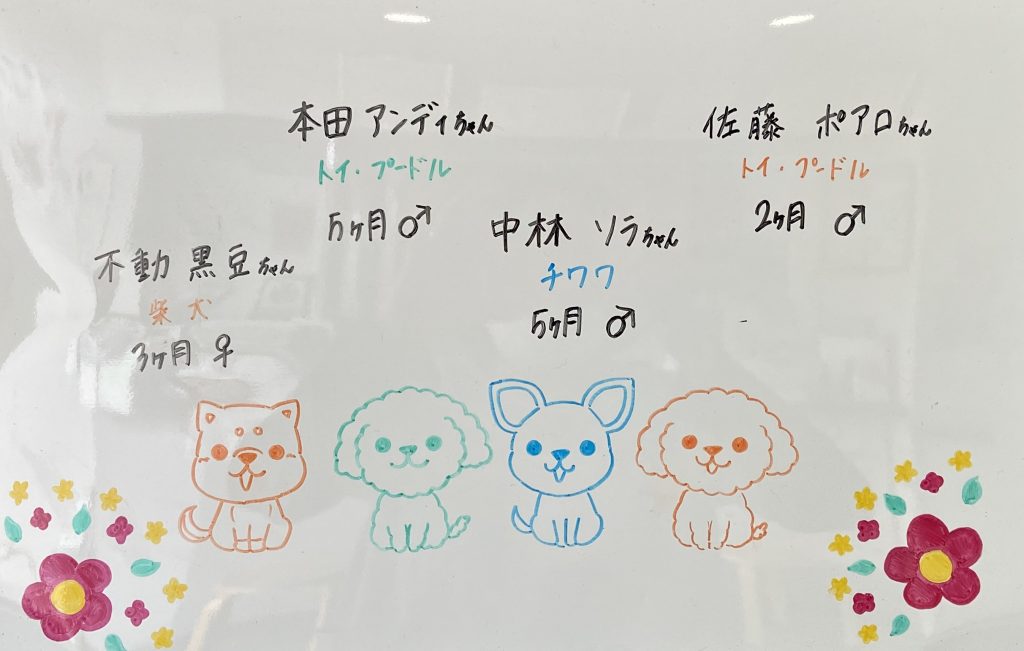 本田 アンディちゃん
トイ・プードル
5ヶ月 ♂
佐藤 ポアロちゃん
トイ・プードル
2ヶ月 ♂
不動 黒豆ちゃん
柴犬
3ヶ月 ♀
中林 ソラちゃん
チワワ
5ヶ月 ♂